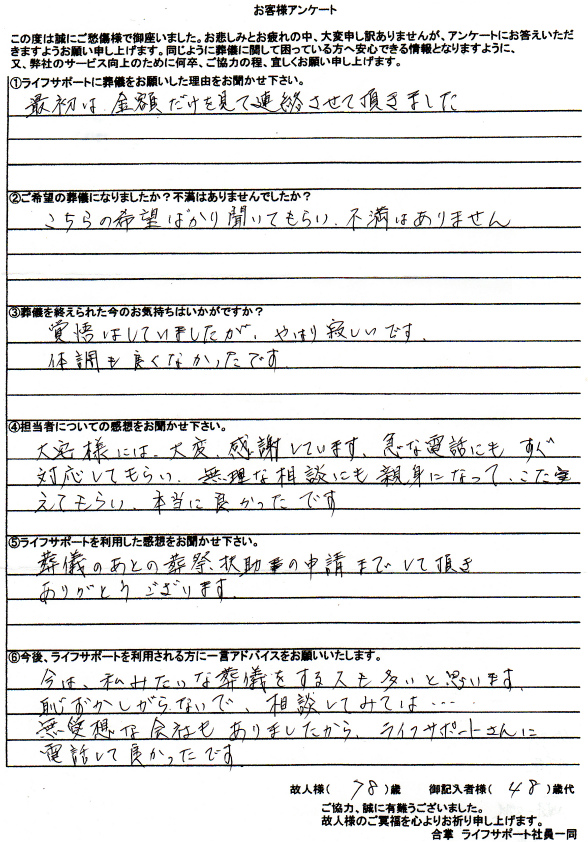 お客様アンケート
この度は誠にご愁傷様で御座いました。お悲しみとお疲れの中、大変申し訳ありませんが、アンケートにお答えいただ
きますようお願い申し上げます。同じように葬儀に関して困っている方へ安心できる情報となりますように、
又、弊社のサービス向上のために何卒、ご協力の程、宜しくお願い申し上げます。
①ライフサポートに葬儀をお願いした理由をお聞かせ下さい。
最初は金額だけを見て連絡させて頂きました
②ご希望の葬儀になりましたか？不満はありませんでしたか？
こちらの希望ばかり聞いてもらい、不満はありません
③葬儀を終えられた今のお気持ちはいかがですか？
覚悟はしていましたが、やはり寂しいです。
体調も良くなかったです
④担当者についての感想をお聞かせ下さい。
様には、大変、感謝しています。急な電話にもすぐ
対応してもらい、無理な相談にも親身になって、こた
えてもらい、本当に良かったです
⑤ライフサポートを利用した感想をお聞かせ下さい。
葬儀のあとの葬祭、扶助の申請までして頂き
ありがとうございます。
⑥今後、ライフサポートを利用される方に一言アドバイスをお願いいたします。
今は、私みたいな葬儀をする人も多いと思います。
恥ずかしがらないで、相談してみては……
無愛想な会社もありましたから、ライフサポートさんに
電話して良かったです。
故人様（ 78 ）歳 御記入者様（ 48 ）歳代
ご協力、誠に有難うございました。
故人様のご冥福を心よりお祈り申し上げます。
合掌 ライフサポート社員一同